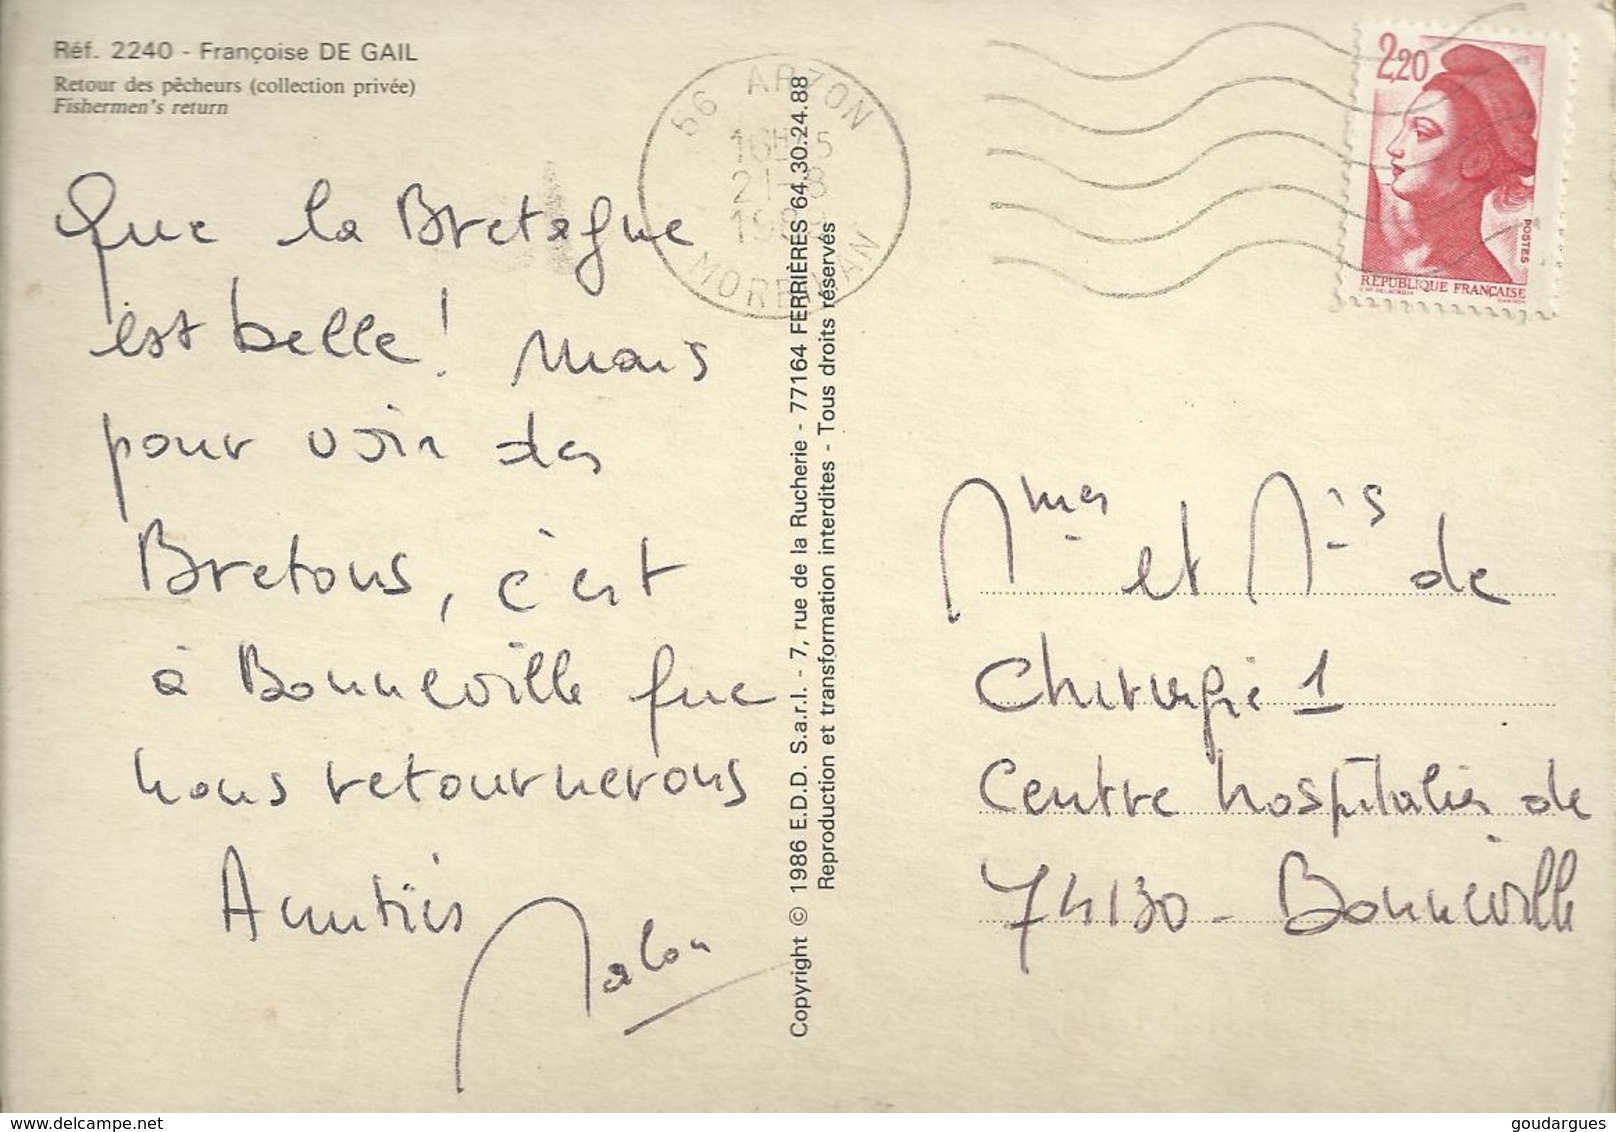 Réf. 2240 - Françoise DE GAIL
Retour des pêcheurs (collection privée)
Fishermen's return
56 ARZON
MORBIHAN
2,20
POSTES
RÉPUBLIQUE FRANÇAISE
Que la Bretagne
est belle! Mais
pour voir des
Bretons, c'est
à Bonneville que
nous retournerons
Amitiés
Copyright © 1986 E.D.D. S.a.r.l. - 7, rue de la Rucherie - 77164 FERRIÈRES 64.30.24.88
Reproduction et transformation interdites - Tous droits réservés
Mmes et Mrs de
Chirurgie 1
Centre hospitalier de
74130 - Bonneville
goudargues@delcampe.net